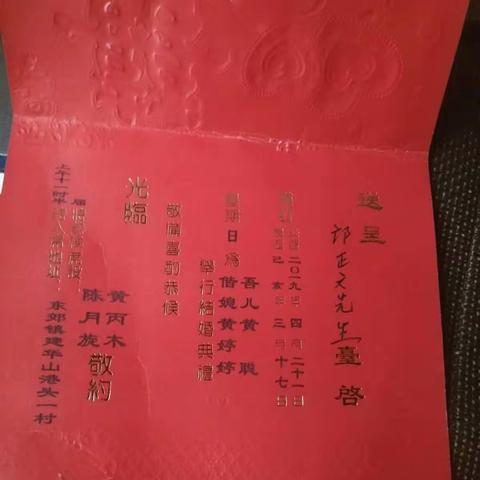 送呈
邱正文先生臺啓
謹訂 公曆二〇一九年四月二十一日
農曆己亥年三月十七日
星期日為
吾儿黄聪
偕媳黄婷婷
舉行結婚典禮
敬備喜酌恭候
光臨
黄丙木
陈月旋
敬約
届時
上午十一时半
地址：东郊镇建华山港头一村